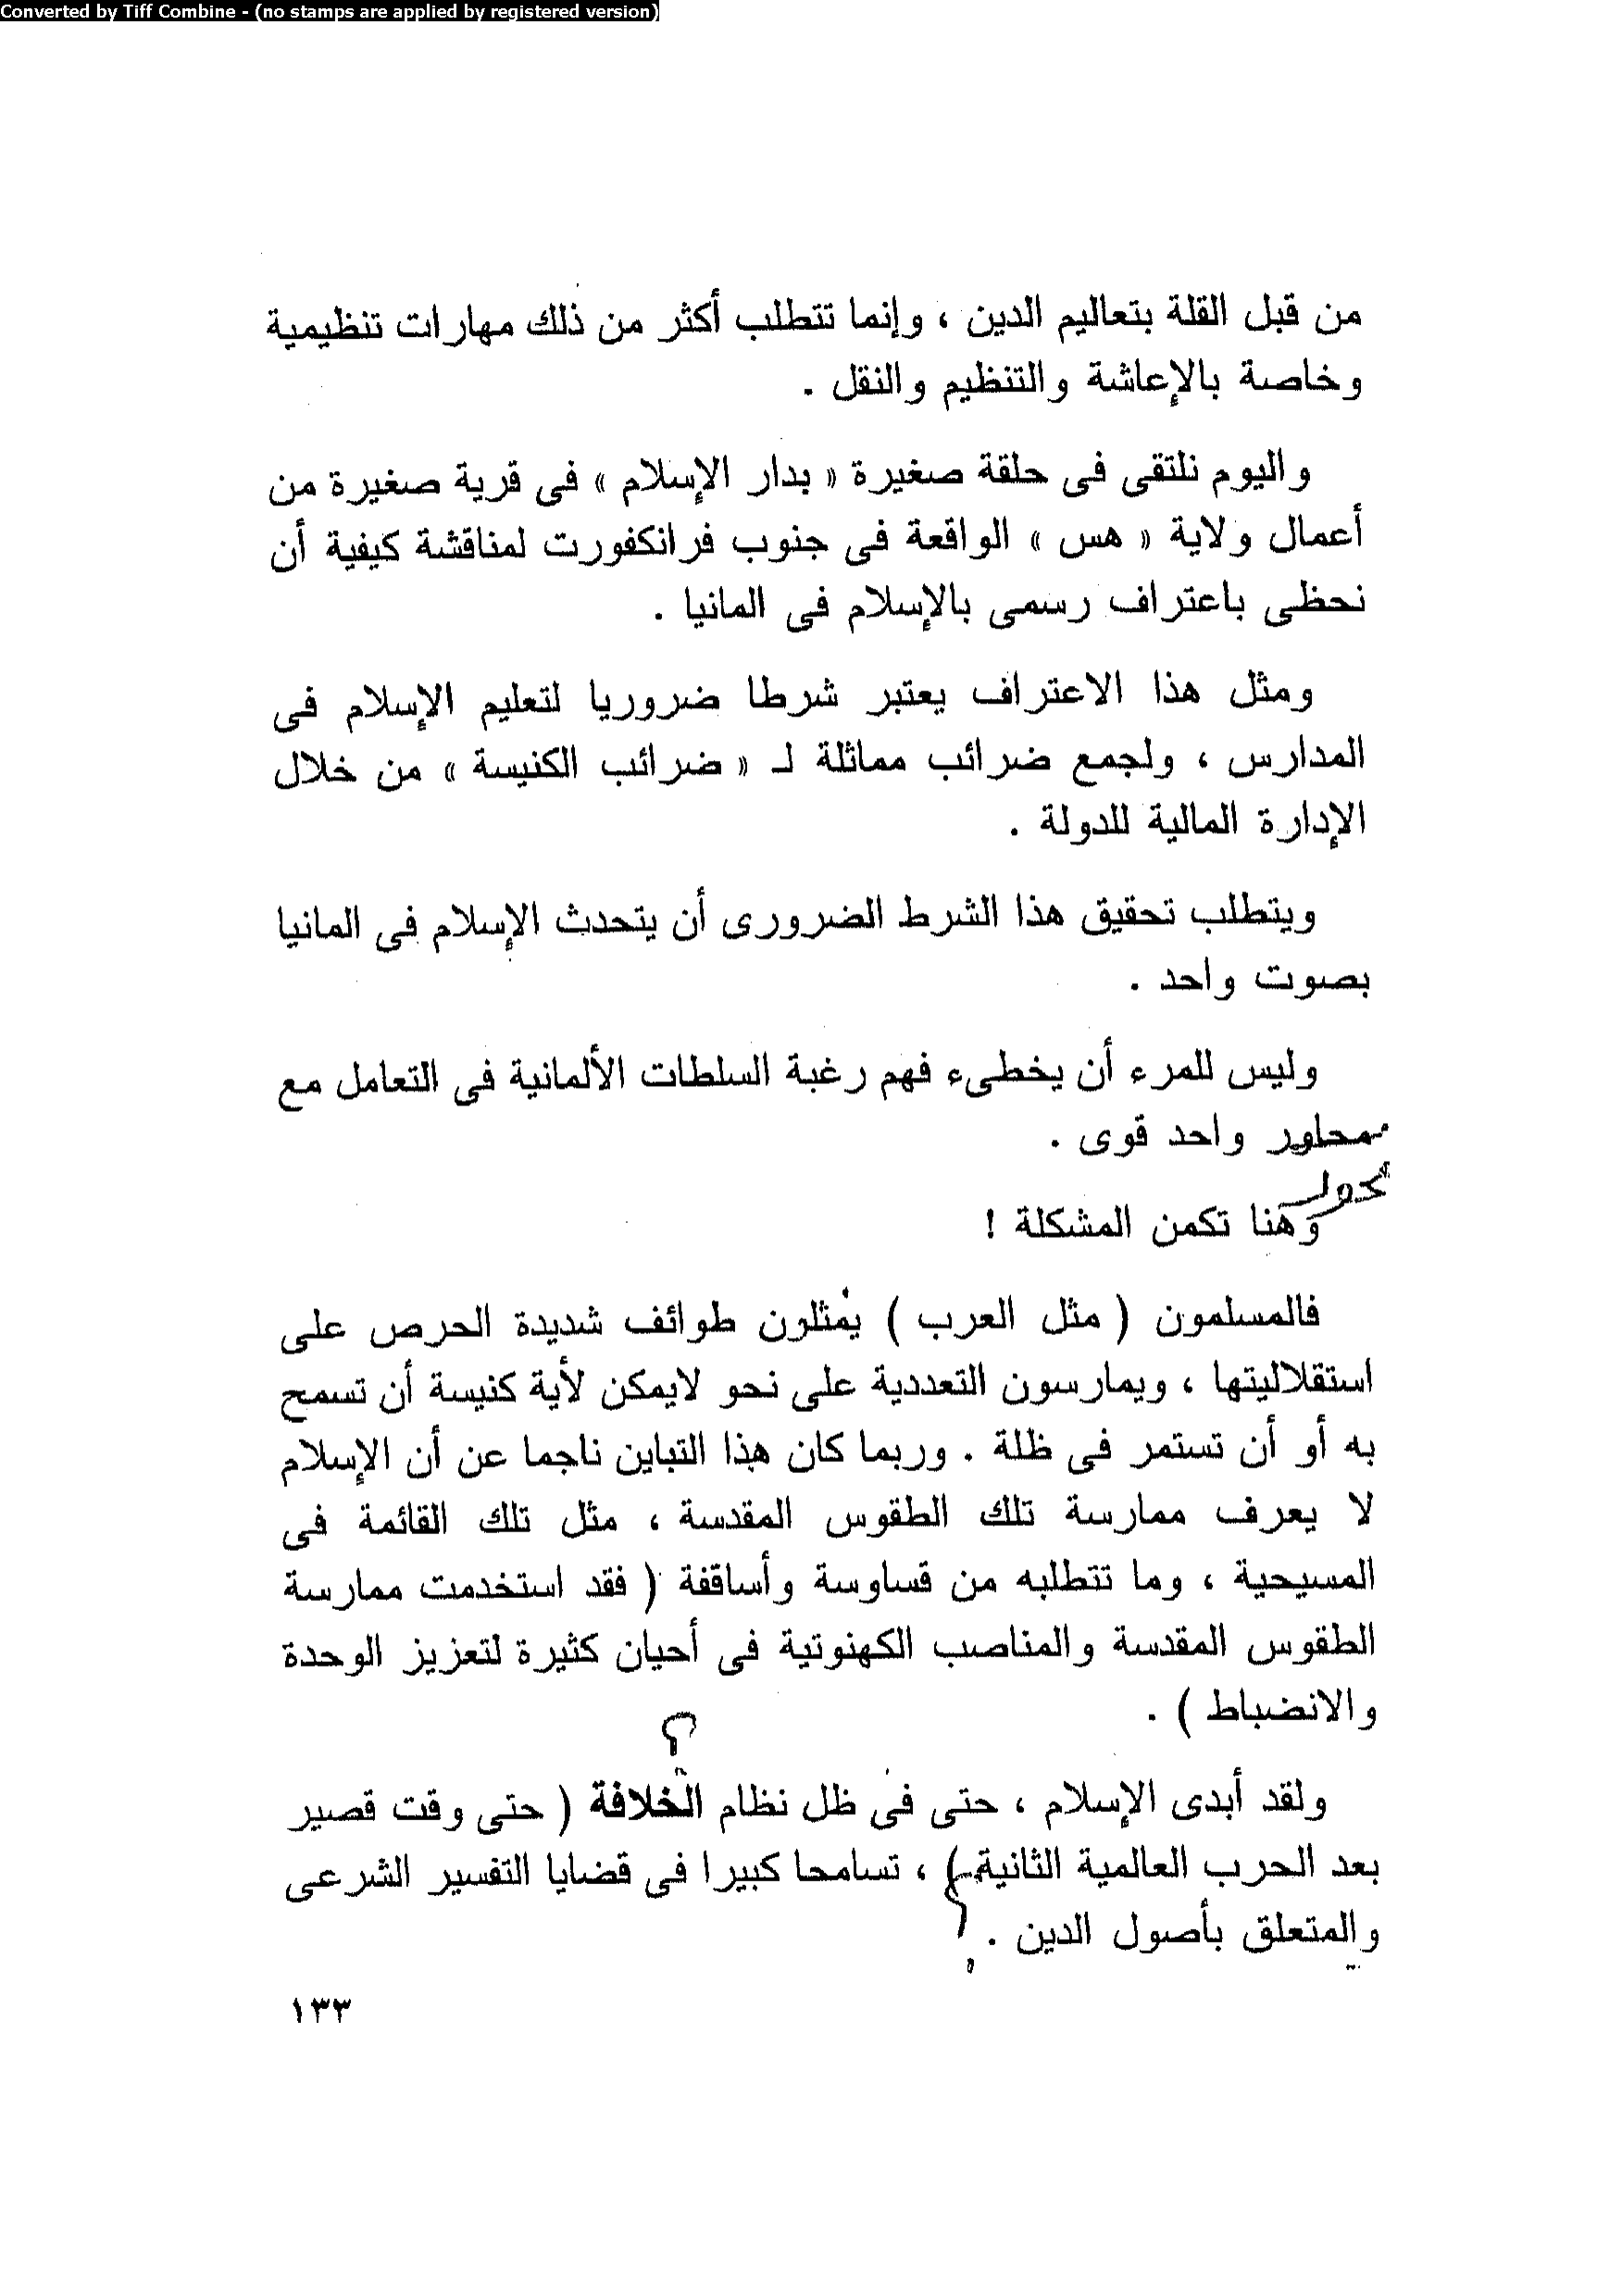 Converted by Tiff Combine - (no stamps are applied by registered version)
من قبل القلة بتعاليم الدين ، وإنما تتطلب أكثر من ذلك مهارات تنظيمية
وخاصة بالإعاشة والتنظيم والنقل .
واليوم نلتقى فى حلقة صغيرة « بدار الإسلام » فى قرية صغيرة من
أعمال ولاية « هس » الواقعة فى جنوب فرانكفورت لمناقشة كيفية أن
نحظى باعتراف رسمى بالإسلام فى المانيا .
ومثل هذا الاعتراف يعتبر شرطا ضروريا لتعليم الإسلام فى
المدارس ، ولجمع ضرائب مماثلة لـ « ضرائب الكنيسة » من خلال
الإدارة المالية للدولة .
ويتطلب تحقيق هذا الشرط الضرورى أن يتحدث الإسلام فى المانيا
بصوت واحد .
وليس للمرء أن يخطىء فهم رغبة السلطات الألمانية فى التعامل مع
محاور واحد قوى .
وهنا تكمن المشكلة !
فالمسلمون ( مثل العرب ) يمثلون طوائف شديدة الحرص على
استقلاليتها ، ويمارسون التعددية على نحو لايمكن لأية كنيسة أن تسمح
به أو أن تستمر فى ظلة . وربما كان هذا التباين ناجما عن أن الإسلام
لا يعرف ممارسة تلك الطقوس المقدسة ، مثل تلك القائمة فى
المسيحية ، وما تتطلبه من قساوسة وأساقفة ( فقد استخدمت ممارسة
الطقوس المقدسة والمناصب الكهنوتية فى أحيان كثيرة لتعزيز الوحدة
والانضباط ) .
؟
ولقد أبدى الإسلام ، حتى فى ظل نظام الخلافة ( حتى وقت قصير
بعد الحرب العالمية الثانية ) ، تسامحا كبيرا فى قضايا التفسير الشرعى
والمتعلق بأصول الدين .
١٣٣